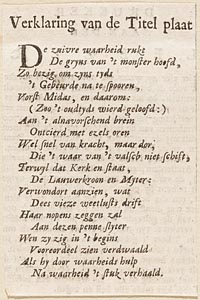 Verklaring van de Titel plaat
De zuivre waarheid rukt
De gryns van 't monster hoofd,
Zo bezig om zyns tyds
't Gebeurde na te spooren,
Vorst Midas, en daarom:
(Zoo 't oudtyds wierd geloofd:)
Aan 't alnavorschend brein
Ontcierd met ezels oren
Wel snel van kracht, maar dor,
Die 't waar van 't valsch niet schift,
Terwyl dat Kerk en staat,
De Lauwerkroon en Myter:
Verwondort aanzien, wat
Dees vieze veeltlusts drift
Haar nopens zeggen zal
Aan dezen penne slyter.
Wen zy zig in 't begins
Vooreordeel zien verdwaald
Als hy door waarheids hulp
Na waarheid 't stuk verhaald.